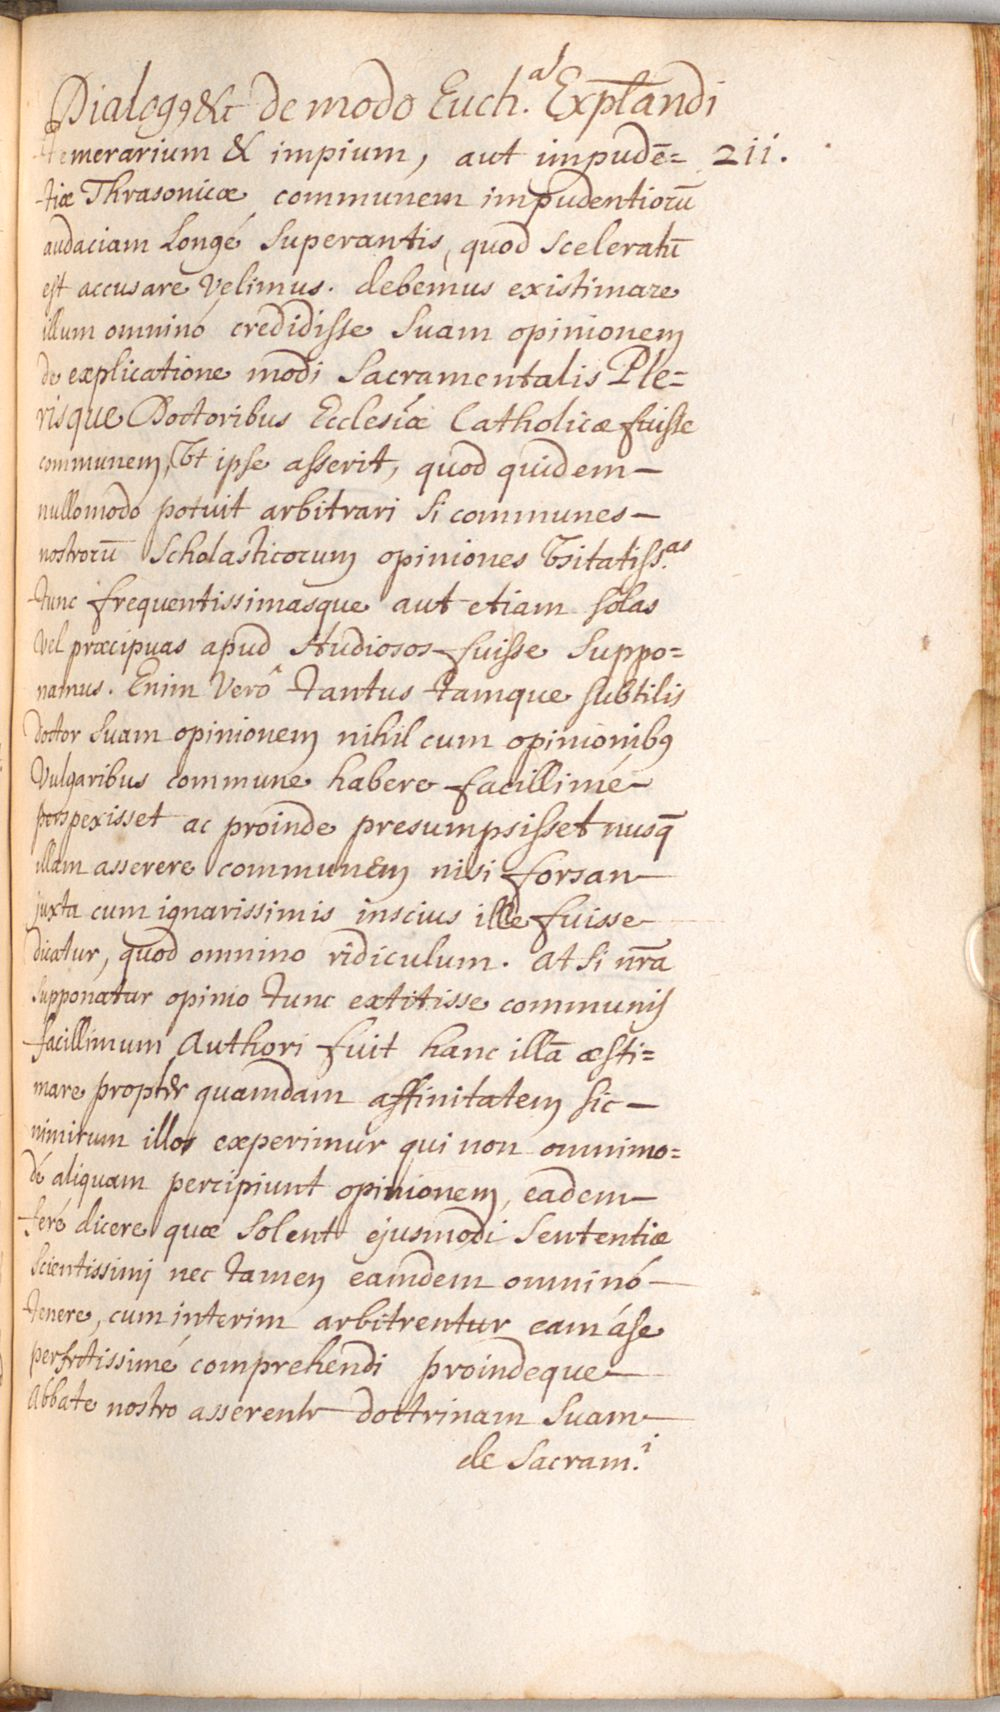 Dialog9 &c de modo Euch.al Explandi
temerarium & impium, aut impudē= 211.
tiæ Thrasonicæ communem impudentiorū
audaciam Longé Superantis, quod Sceleratū
est accusare Velimus. debemus existimare
illum omninó credidisse Suam opinionem
de explicatione modi Sacramentalis Ple=
risque Doctoribus Ecclesiæ Catholicæ fuisse
communem, Vt ipse asserit, quod quidem—
nullomodo potuit arbitrari Si communes—
nostrorū Scholasticorum opiniones Vsitatiss.as
tunc frequentissimasque aut etiam solas
Vel præcipuas apud Studiosos fuisse Suppo=
namus. Enim Verô tantus tamque subtilis
doctor Suam opinionem nihil cum opinionib9
Vulgaribus commune habere facillimé—
perspexisset ac proinde presumpsisset nusq̄
ullam asserere communem nisi forsan—
juxta cum ignarissimis inscius ille fuisse—
dicatur, quod omnino ridiculum. At Si nr̄a
supponatur opinio tunc extitisse communis
facillimum Authori fuit hanc illā æsti=
mare propter quamdam affinitatem sic—
nimirum illos experimur qui non omnimo=
dé aliquam percipiunt opinionem, eadem—
feré dicere quæ Solent ejusmodi Sententiæ
scientissimj nec tamen eamdem omninó—
tenere, cum interim arbitrentur eam áse
perfectissimé comprehendi proindeque—
Abbate nostro asserente doctrinam Suam—
de Sacram.i